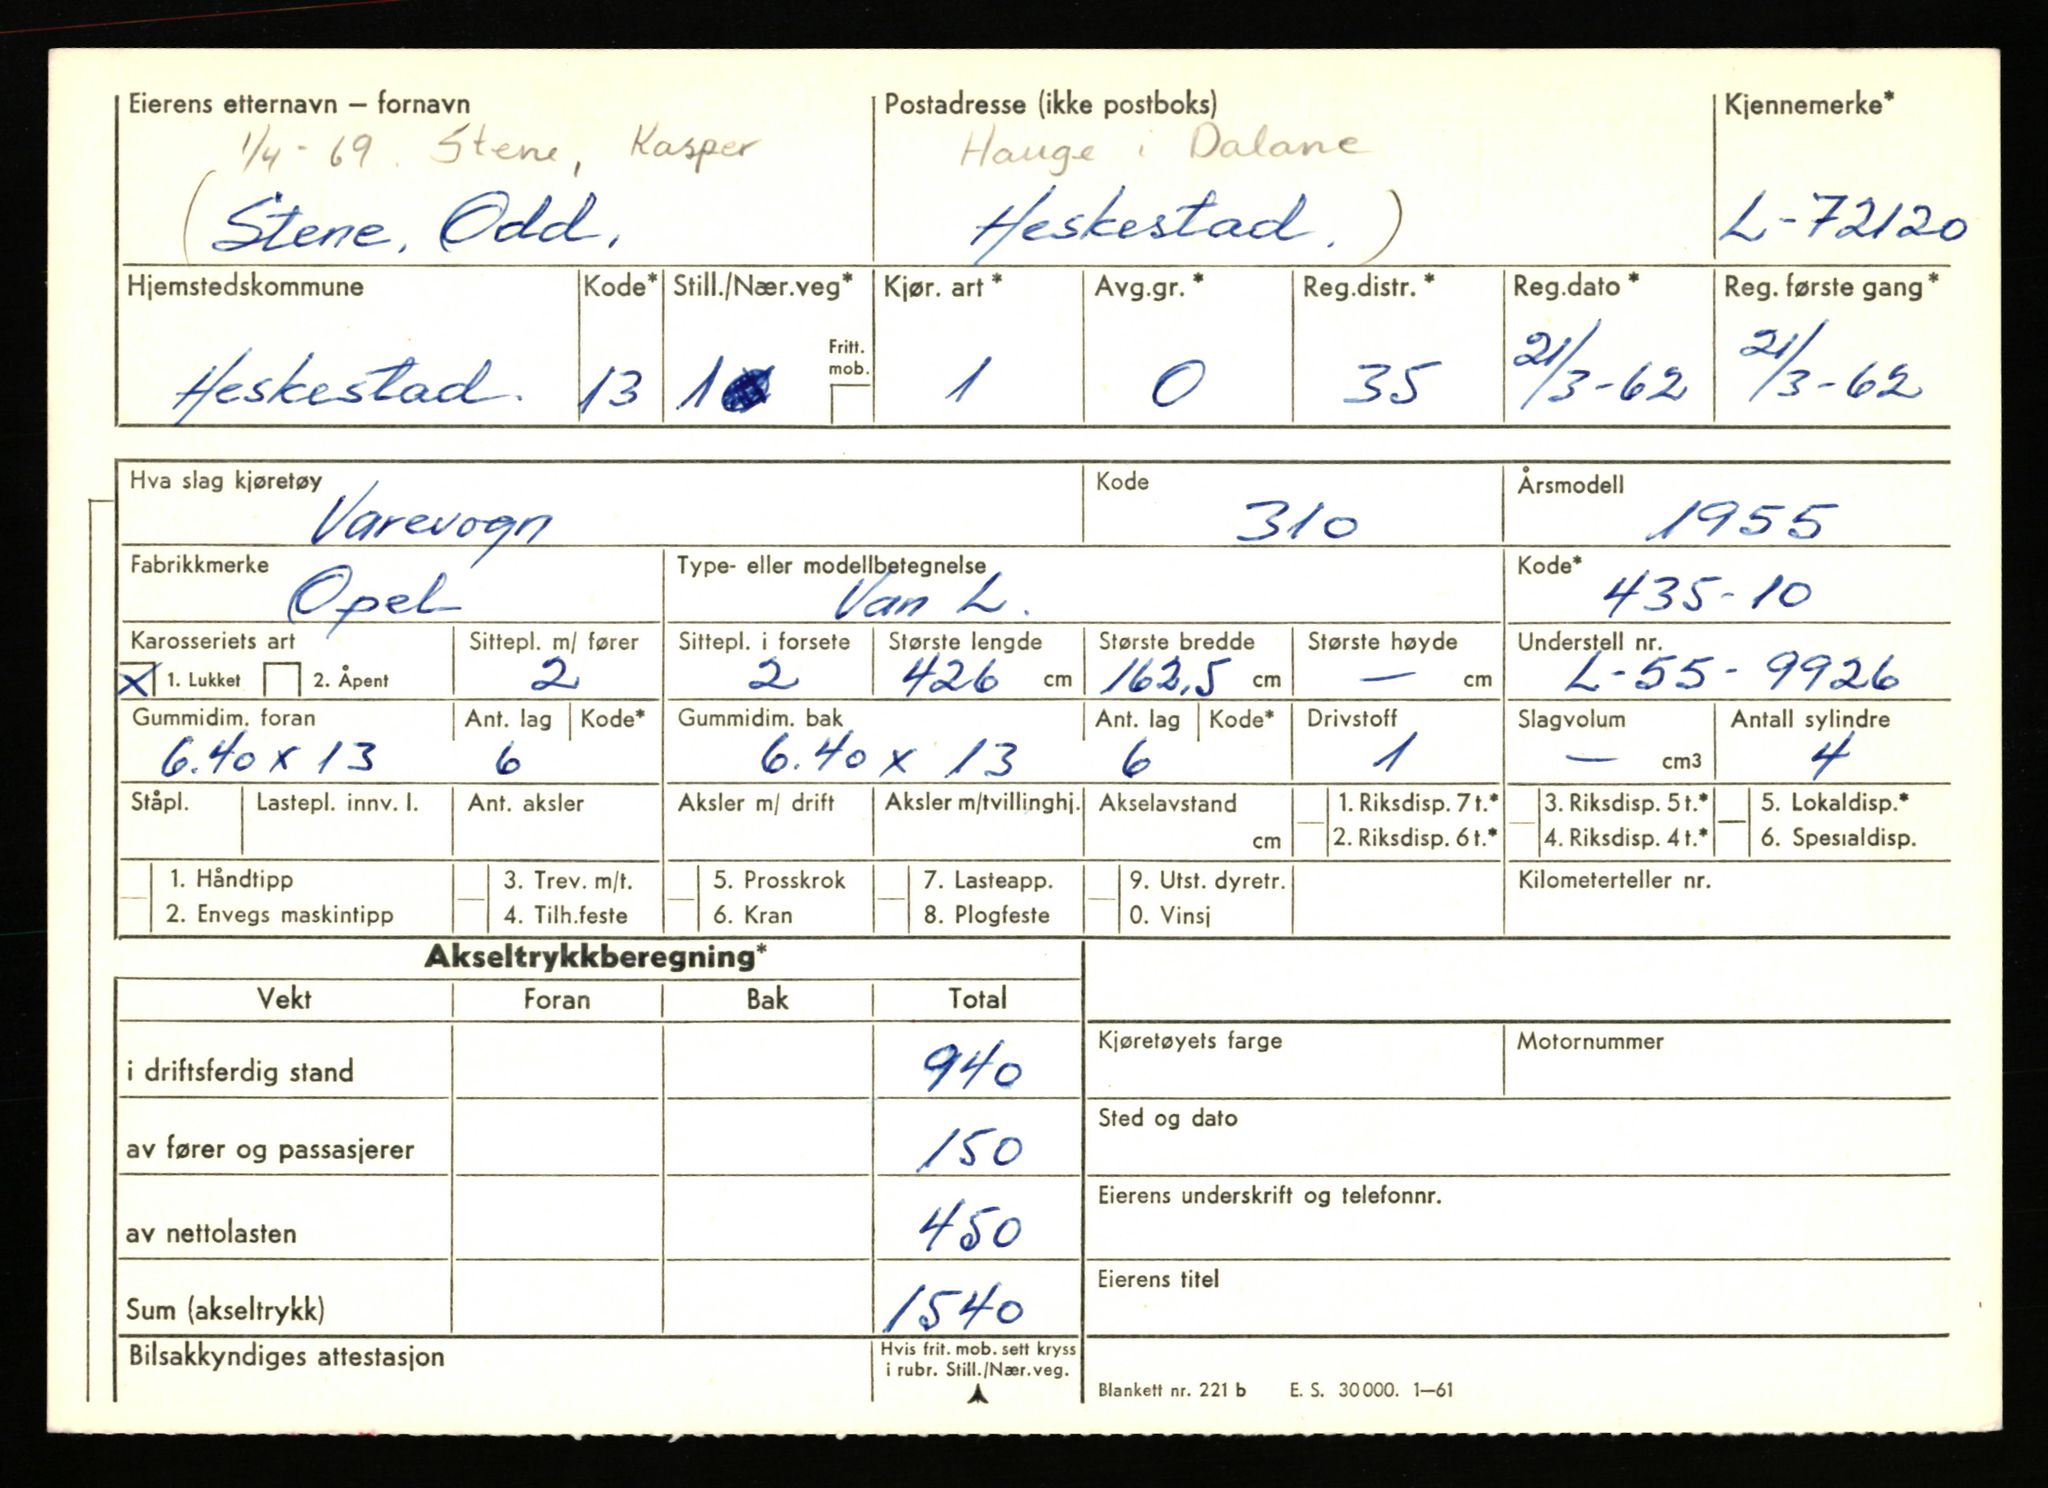 Eierens etternavn – fornavn Postadresse (ikke postboks) Kjennemerke*
1/4-69. Stene, Kasper Hauge i Dalane
(Stene, Odd, Heskestad.) L-72120
Hjemstedskommune Kode* Still./Nær.veg* Kjør. art* Avg.gr.* Reg.distr.* Reg.dato* Reg. første gang*
Fritt. mob.
Heskestad. 13 1 1 0 35 21/3-62 21/3-62
Hva slag kjøretøy Kode Årsmodell
Varevogn 310 1955
Fabrikkmerke Type- eller modellbetegnelse Kode*
Opel Van L. 435-10
Karosseriets art Sittepl. m/ fører Sittepl. i forsete Største lengde Største bredde Største høyde Understell nr.
X 1. Lukket 2. Åpent 2 2 426 cm 162,5 cm — cm L-55-9926
Gummidim. foran Ant. lag Kode* Gummidim. bak Ant. lag Kode* Drivstoff Slagvolum Antall sylindre
6.40 x 13 6 6.40 x 13 6 1 — cm3 4
Ståpl. Lastepl. innv. l. Ant. aksler Aksler m/ drift Aksler m/tvillinghj. Akselavstand cm 1. Riksdisp. 7 t.* 3. Riksdisp. 5 t.* 5. Lokaldisp.*
2. Riksdisp. 6 t.* 4. Riksdisp. 4 t.* 6. Spesialdisp.
1. Håndtipp 3. Trev. m/t. 5. Prosskrok 7. Lasteapp. 9. Utst. dyretr. Kilometerteller nr.
2. Envegs maskintipp 4. Tilh.feste 6. Kran 8. Plogfeste 0. Vinsj
Akseltrykkberegning*
Vekt Foran Bak Total
i driftsferdig stand 940
av fører og passasjerer 150
av nettolasten 450
Sum (akseltrykk) 1540
Bilsakkyndiges attestasjon
Hvis frit. mob. sett kryss
i rubr. Still./Nær.veg.
Kjøretøyets farge Motornummer
Sted og dato
Eierens underskrift og telefonnr.
Eierens titel
Blankett nr. 221 b E. S. 30 000. 1—61